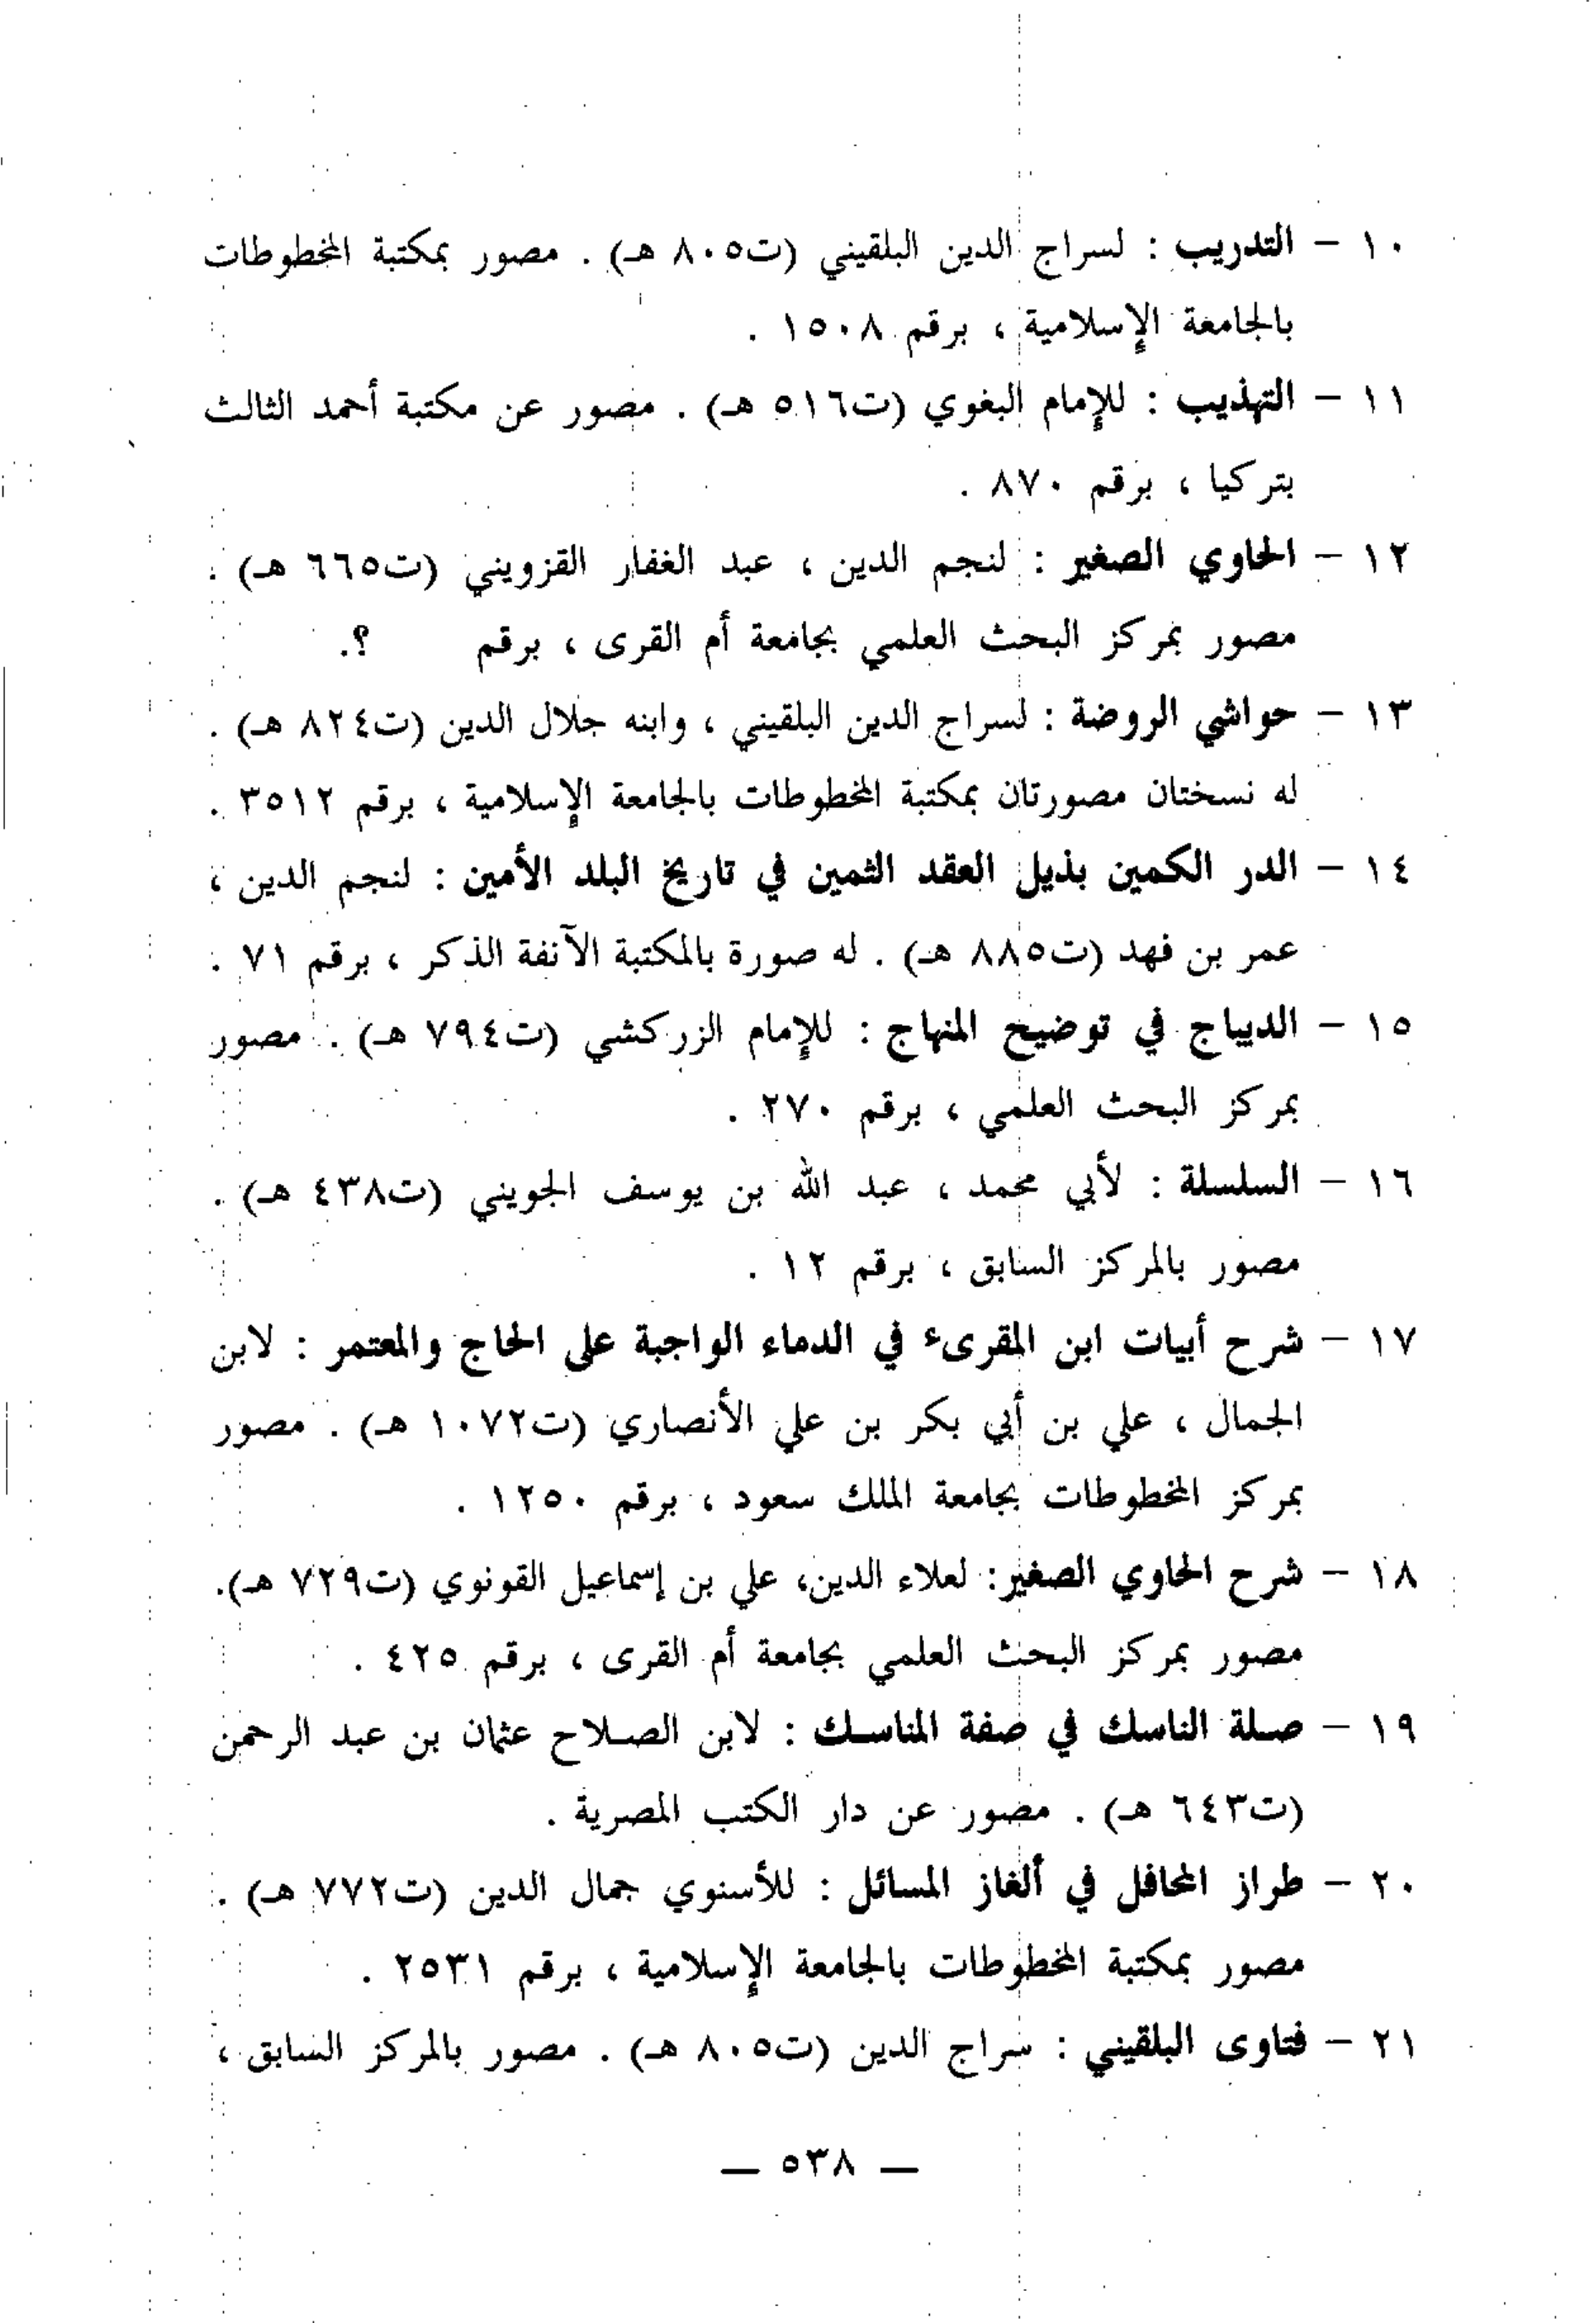 ١٠ – التدريب : لسراج الدين البلقيني (ت٨٠٥ هـ) . مصور بمكتبة المخطوطات
بالجامعة الإسلامية ، برقم ١٥٠٨ .
١١ – التهذيب : للإمام البغوي (ت٥١٦ هـ) . مصور عن مكتبة أحمد الثالث
بتركيا ، برقم ٨٧٠ .
١٢ – الحاوي الصغير : لنجم الدين ، عبد الغفار القزويني (ت٦٦٥ هـ) .
مصور بمركز البحث العلمي بجامعة أم القرى ، برقم ؟.
١٣ – حواشي الروضة : لسراج الدين البلقيني ، وابنه جلال الدين (ت٨٢٤ هـ) .
له نسختان مصورتان بمكتبة المخطوطات بالجامعة الإسلامية ، برقم ٣٥١٢ .
١٤ – الدر الكمين بذيل العقد الثمين في تاريخ البلد الأمين : لنجم الدين ،
عمر بن فهد (ت٨٨٥ هـ) . له صورة بالمكتبة الآنفة الذكر ، برقم ٧١ .
١٥ – الديباج في توضيح المنهاج : للإمام الزركشي (ت٧٩٤ هـ) . مصور
بمركز البحث العلمي ، برقم ٢٧٠ .
١٦ – السلسلة : لأبي محمد ، عبد الله بن يوسف الجويني (ت٤٣٨ هـ) .
مصور بالمركز السابق ، برقم ١٢ .
١٧ – شرح أبيات ابن المقرىء في الدماء الواجبة على الحاج والمعتمر : لابن
الجمال ، علي بن أبي بكر بن علي الأنصاري (ت١٠٧٢ هـ) . مصور
بمركز المخطوطات بجامعة الملك سعود ، برقم ١٢٥٠ .
١٨ – شرح الحاوي الصغير: لعلاء الدين، علي بن إسماعيل القونوي (ت٧٢٩ هـ).
مصور بمركز البحث العلمي بجامعة أم القرى ، برقم ٤٢٥ .
١٩ – صلة الناسك في صفة المناسك : لابن الصلاح عثمان بن عبد الرحمن
(ت٦٤٣ هـ) . مصور عن دار الكتب المصرية .
٢٠ – طراز المحافل في ألغاز المسائل : للأسنوي جمال الدين (ت٧٧٢ هـ) .
مصور بمكتبة المخطوطات بالجامعة الإسلامية ، برقم ٢٥٣١ .
٢١ – فتاوى البلقيني : سراج الدين (ت٨٠٥ هـ) . مصور بالمركز السابق ،
— ٥٣٨ —